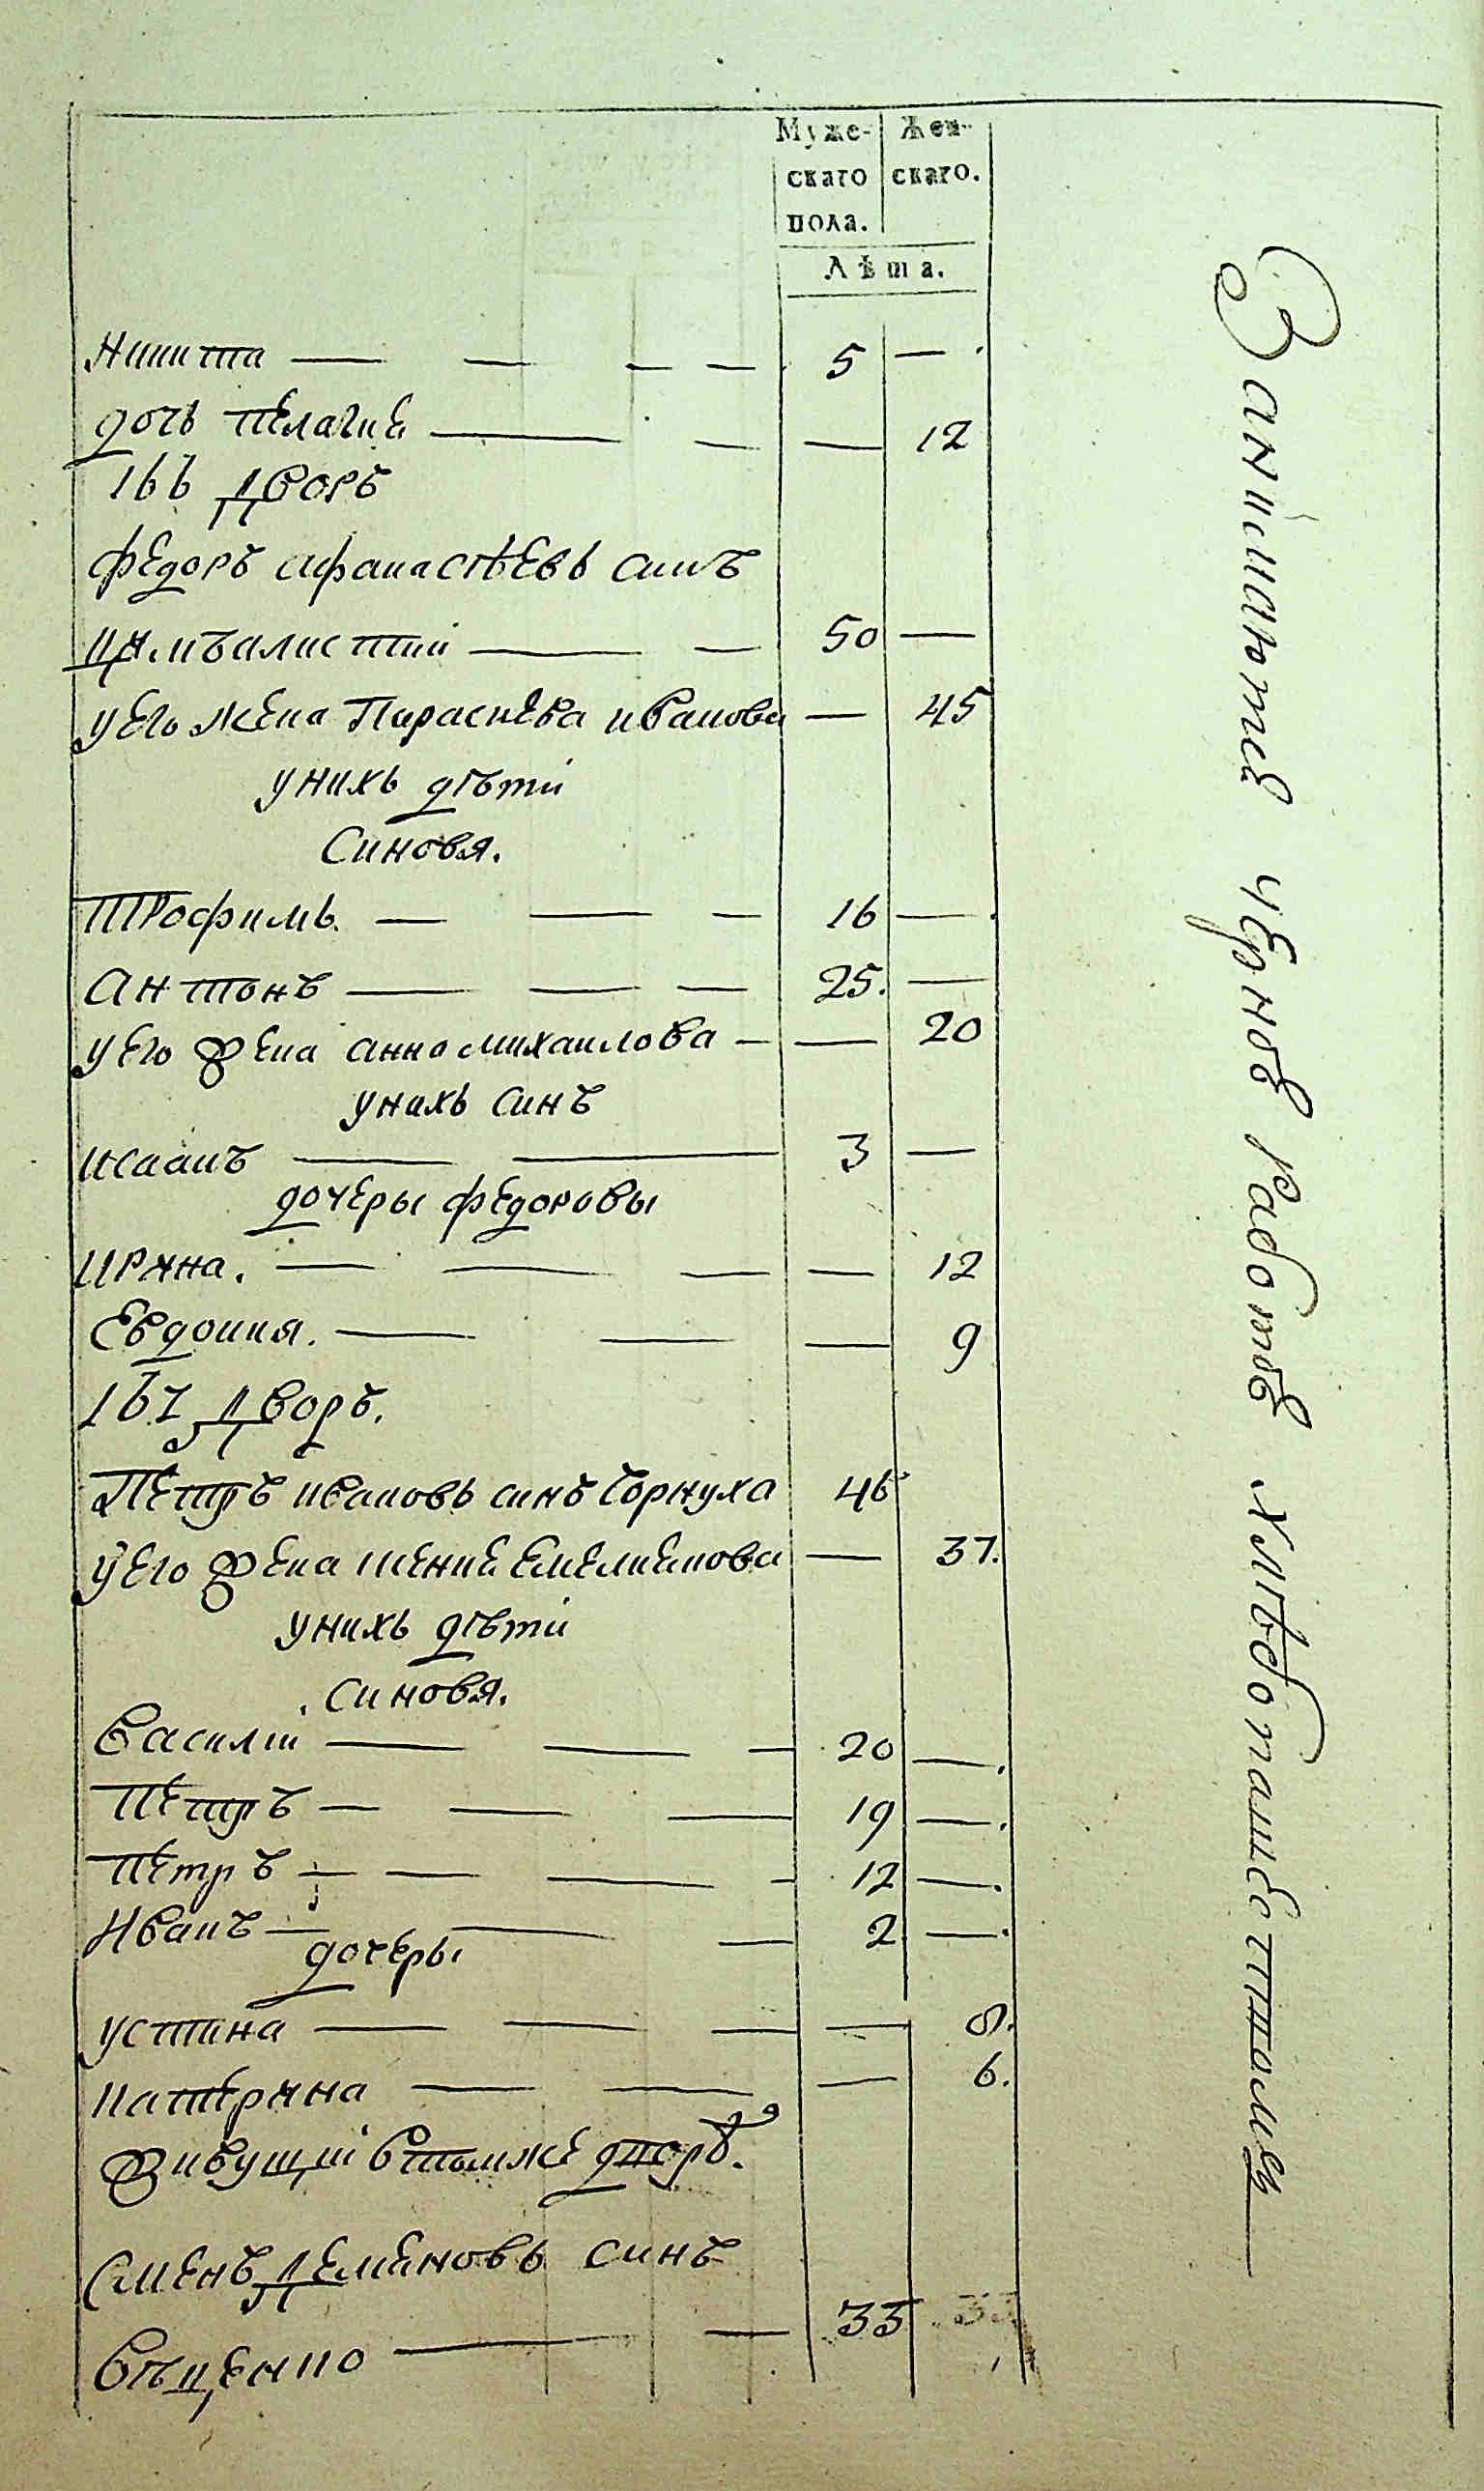 Муже- Жен-
скаго скаго.
пола.
Лѣта.
Никита — — — — 5 —
дочь Пелагиꙗ — — — 12
166 Дворъ
Федоръ Афанасѣевъ синъ
Цимъалистий — — 50 —
у его жена Параскева Иванова — 45
у нихъ дѣти
Синовя.
Трофимъ. — — — 16 —
Антонъ — — — 25. —
у его жена Анна Михаилова — — 20
у нихъ синъ
Исаакъ — — 3 —
дочеры Федоровы
Ирина. — — — — 12
Евдокия. — — — 9
167 Дворъ.
Петръ Ивановъ синъ Чорнуха 46
у его жена Ксения Емелиянова — 37.
у нихъ дѣти
Синовя.
Василій — — — 20 —.
Петръ — — — 19 —.
Петръ — — — — 12 —.
Иванъ — — — 2 —.
дочеры
Устина — — — — 8.
Катерина — — — 6.
Живущіи в томже дворѣ.
Семенъ Деменовъ синъ
— — 33
Занимаются чорною работою хлѣбопашеством